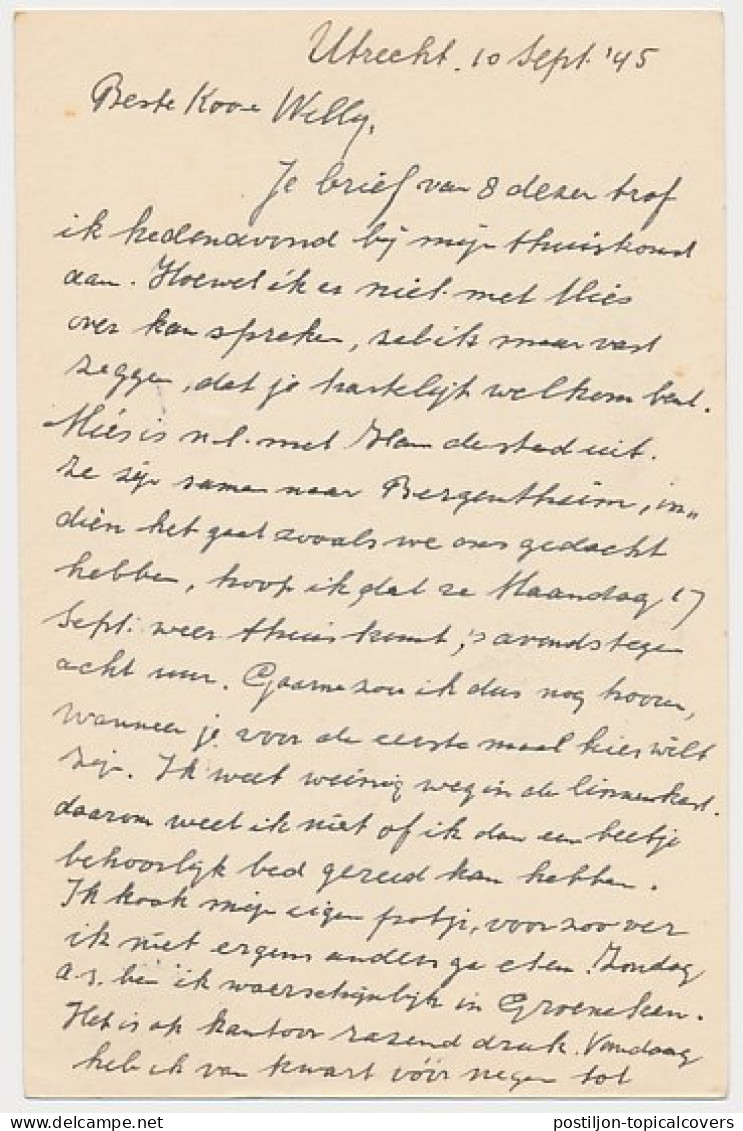 Utrecht, 10 Sept. '45
Beste Koo e Willy,
Je brief van 8 dezer trof
ik hedenavond bij mijn thuiskomst
aan. Hoewel ik er niet met Miés
over kan spreken, zal ik maar vast
zeggen, dat je hartelijk welkom bent.
Miés is n.l. met Han de stad uit.
Ze zijn samen naar Bergentheim, in„
dien het gaat zooals we ons gedacht
hebben, hoop ik dat ze Maandag 17
Sept. weer thuis komt, 's avonds tegen
acht uur. Gaarne zou ik dus nog hooren,
wanneer je voor de eerste maal hier wilt
zijn. Ik weet weinig weg in de linnenkast.
daarom weet ik niet of ik dan een beetje
behoorlijk bed gereed kan hebben.
Ik kook mijn eigen potje, voor zoo ver
ik niet ergens anders ga eten. Zondag
a.s. ben ik waarschijnlijk in Groenekan.
Het is op kantoor razend druk. Vandaag
heb ik van kwart vóór negen tot
postiljon-topicalcovers